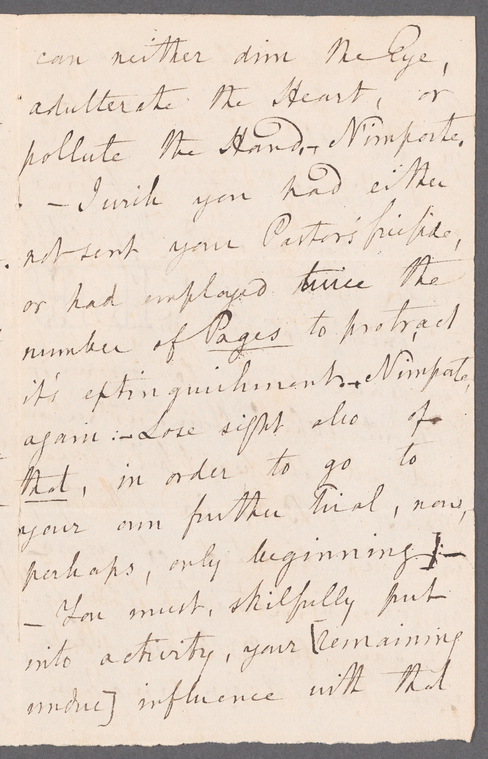 can neither dim the Eye,
adulterate the Heart, or
pollute the Hand. – N'importe.
– I wish you had either
not sent your Pastor's fireside,
or had employed twice the
number of Pages to protract
it's extinguishment. – N'importe,
again: – Lose sight also of
that, in order to go to
your own further trial, now,
perhaps, only beginning]: –
– You must, skilfully put
into activity, your [remaining
undue] influence with that